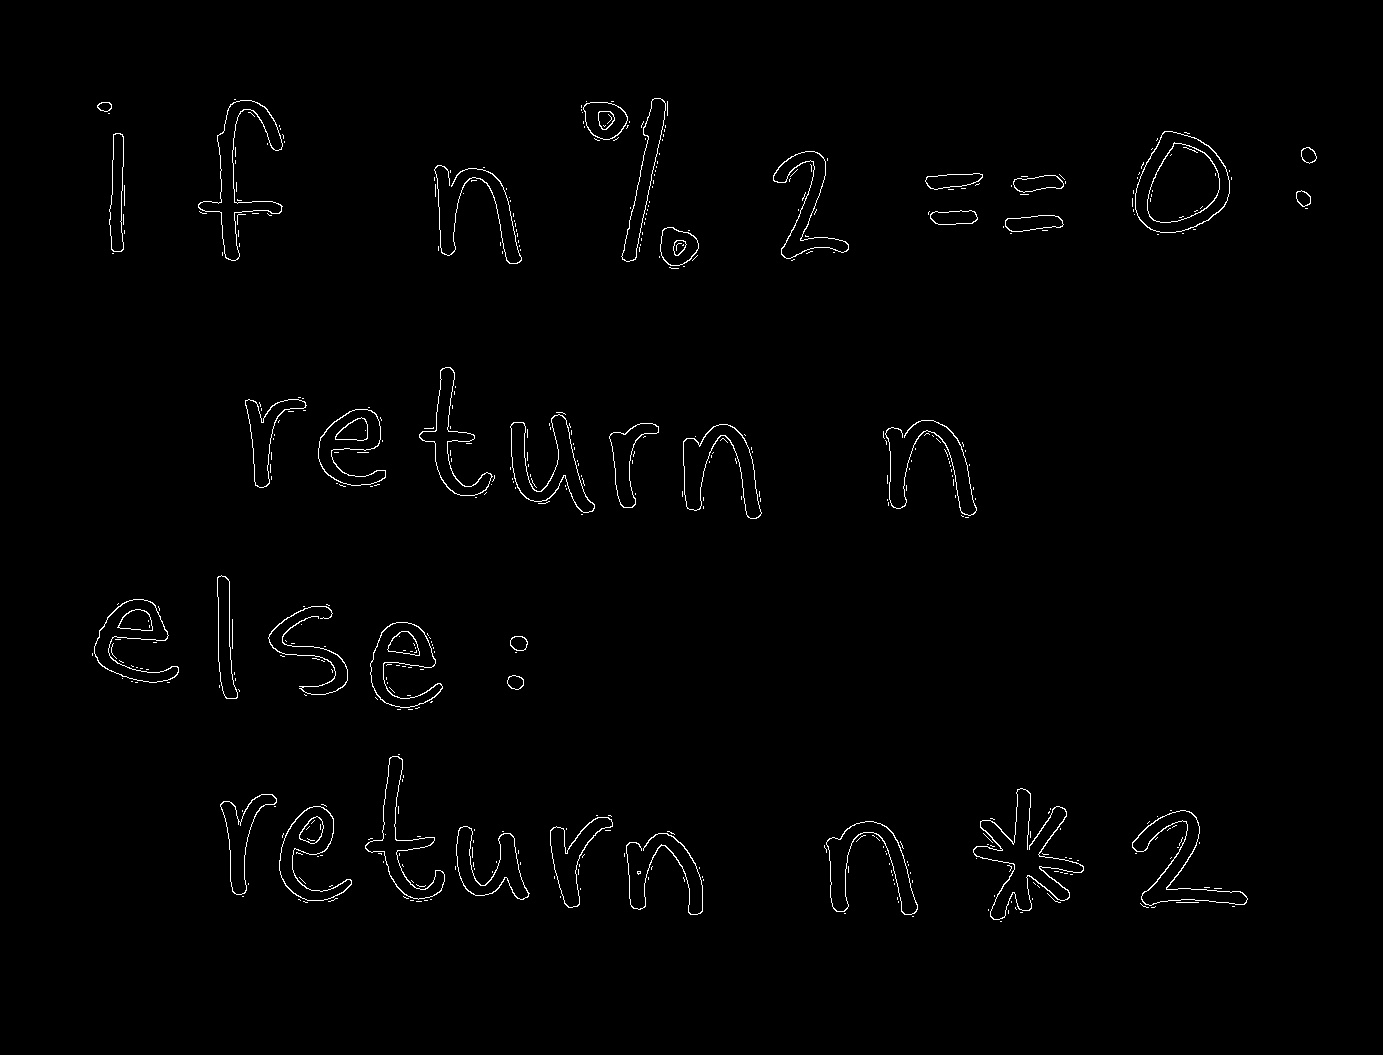 if n % 2 == 0 :
    return n
else :
    return n * 2